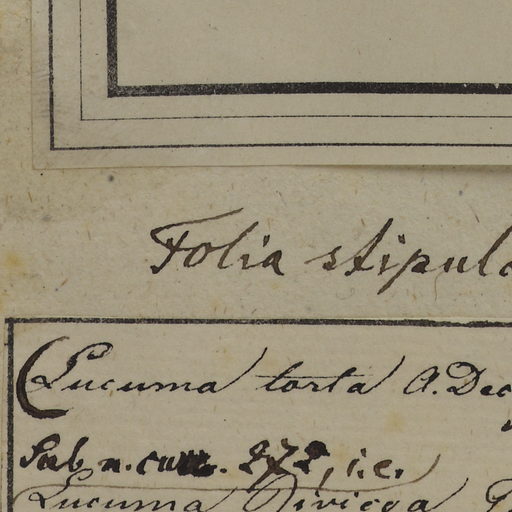 Folia stipul
(Lucuma torta A. Dec
Sub n. 272, i.e.
(Lucuma Rivicoa G